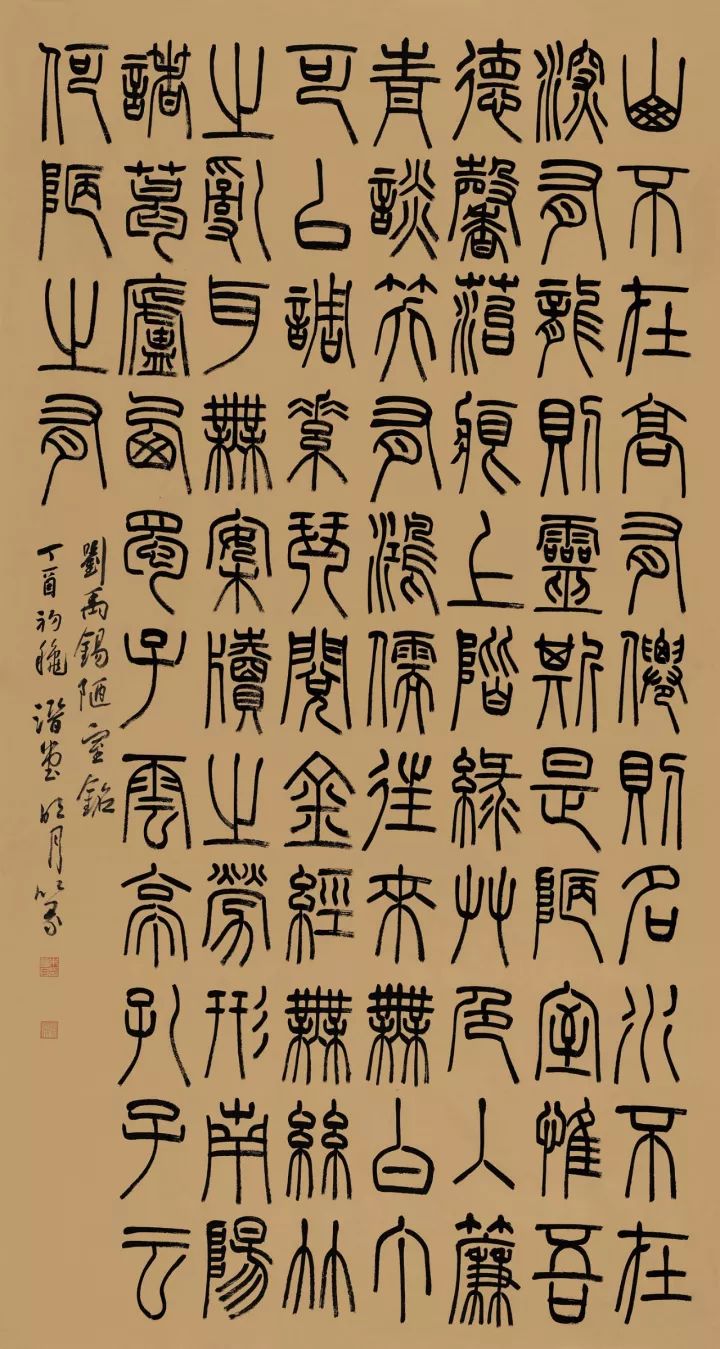 山不在高有僊則名水不在
深有龍則靈斯是陋室惟吾
德馨菭痕上階綠艸色入簾
青談笑有鴻儒往來無白丁
可㠯調素琴閱金經無絲竹
之亂耳無案牘之勞形南陽
諸葛廬西蜀子雲亭孔子云
何陋之有
劉禹錫陋室銘
丁酉初穐潛堂明月篆